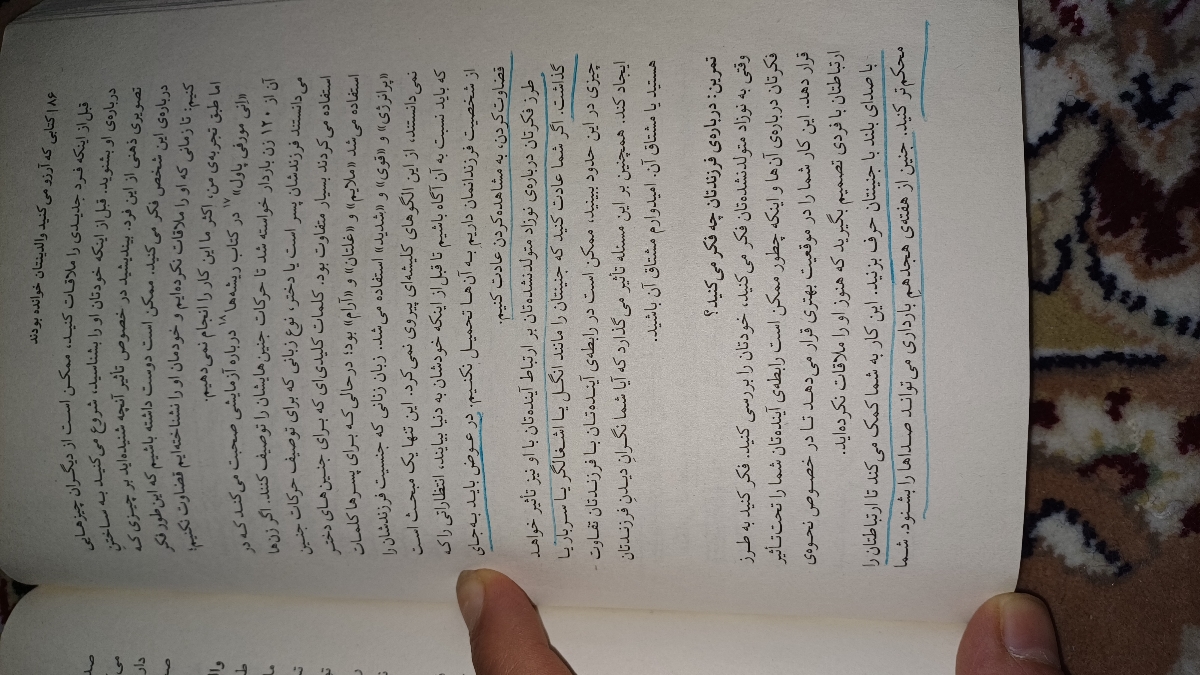 ۸۶ | کتابی که آرزو می‌کنید والدینتان خوانده بودند
قبل از اینکه فرد جدیدی را ملاقات کنید، ممکن است از دیگران چیزهایی
درباره‌ی او بشنوید. قبل از اینکه خودتان او را بشناسید، شروع می‌کنید به ساختن
تصویری ذهنی از این فرد. بیندیشید در خصوص تاثیر آنچه شنیده‌اید بر چیزی که
درباره‌ی این شخص فکر می‌کنید. ممکن است دوست داشته باشیم که این‌طور فکر
کنیم: تا زمانی که او را ملاقات نکرده‌ایم و خودمان او را نشناخته‌ایم قضاوت نکنیم؛
اما طبق تجربه‌ی من، اکثر ما این کار را انجام نمی‌دهیم.
«اِنی مورفی پاول»۱۷ در کتاب ریشه‌ها۱۸ درباره آزمایشی صحبت می‌کند که در
آن از ۱۲۰ زن باردار خواسته شد تا حرکات جنین‌هایشان را توصیف کنند. اگر زن‌ها
می‌دانستند فرزندشان پسر است یا دختر، نوع زبانی که برای توصیف حرکات جنین
استفاده می‌کردند بسیار متفاوت بود. کلمات کلیدی‌ای که برای جنین‌های دختر
استفاده می‌شد «ملایم» و «غلتان» و «آرام» بود؛ درحالی‌که برای پسرها کلمات
«پرانرژی» و «قوی» و «شدید» استفاده می‌شد. زبان زنانی که جنسیت فرزندشان را
نمی‌دانستند، از این الگوهای کلیشه‌ای پیروی نمی‌کرد. این تنها یک مبحث است
که باید نسبت به آن آگاه باشیم تا قبل از اینکه خودشان به دنیا بیایند، انتظاراتی را که
از شخصیت فرزندانمان داریم به آن‌ها تحمیل نکنیم. در عوض باید به‌جای
قضاوت‌کردن، به مشاهده‌کردن عادت کنیم.
طرز فکرتان درباره‌ی نوزاد متولدنشده‌تان بر ارتباط آینده‌تان با او نیز تاثیر خواهد
گذاشت. اگر شما عادت کنید که جنینتان را مانند انگل یا اشغالگر یا سربار یا
چیزی در این حدود ببینید، ممکن است در رابطه‌ی آینده‌تان با فرزندتان تفاوت
ایجاد کند. همچنین بر این مسئله تأثیر می‌گذارد که آیا شما نگرانِ دیدن فرزندتان
هستید یا مشتاق آن. امیدوارم مشتاق آن باشید.
تمرین: درباره‌ی فرزندتان چه فکر می‌کنید؟
وقتی به نوزاد متولدنشده‌تان فکر می‌کنید، خودتان را بررسی کنید. فکر کنید به طرز
فکرتان درباره‌ی آن‌ها و اینکه چطور ممکن است رابطه‌ی آینده‌تان شما را تحت‌تأثیر
قرار دهد. این کار شما را در موقعیت بهتری قرار می‌دهد تا در خصوص نحوه‌ی
ارتباطتان با فردی تصمیم بگیرید که هنوز او را ملاقات نکرده‌اید.
با صدای بلند با جنینتان حرف بزنید. این کار به شما کمک می‌کند تا ارتباطتان را
محکم‌تر کنید. جنین از هفته‌ی هجدهمِ بارداری می‌تواند صداها را بشنود. شما